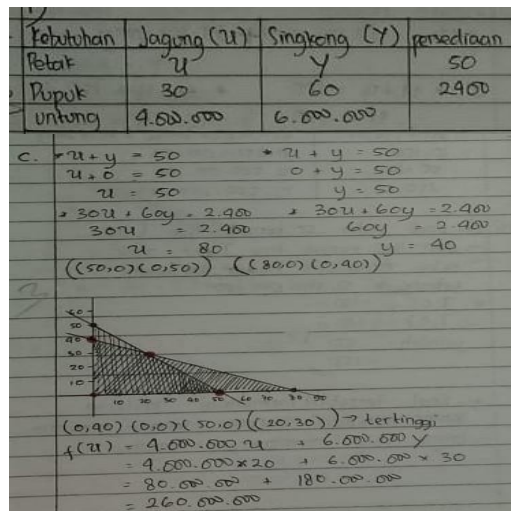 Kebutuhan Jagung (u) Singkong (Y) persediaan
Petak u y 50
Pupuk 30 60 2400
untung 4.000.000 6.000.000
c. * u + y = 50 * u + y = 50
u + 0 = 50 0 + y = 50
u = 50 y = 50
* 30u + 60y = 2.400 * 30u + 60y = 2.400
30u = 2.400 60y = 2.400
u = 80 y = 40
((50,0)(0,50)) ((80,0)(0,40))
60
50
40
30
20
10
10 20 30 40 50 60 70 80 90
(0,40) (0,0) (50,0) ((20,30)) → tertinggi
f(u) = 4.000.000 u + 6.000.000 y
= 4.000.000 x 20 + 6.000.000 x 30
= 80.000.000 + 180.000.000
= 260.000.000